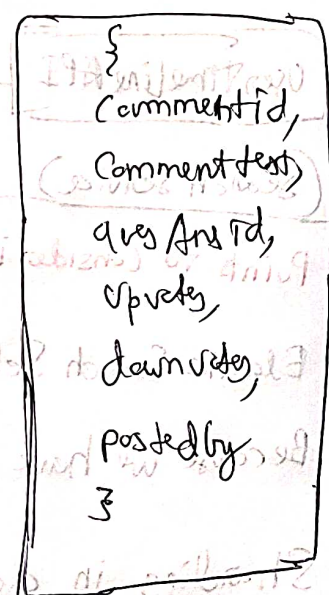 {
Commentid,
Commenttext,
quesAnsId,
upvotes,
downvotes,
postedby
}